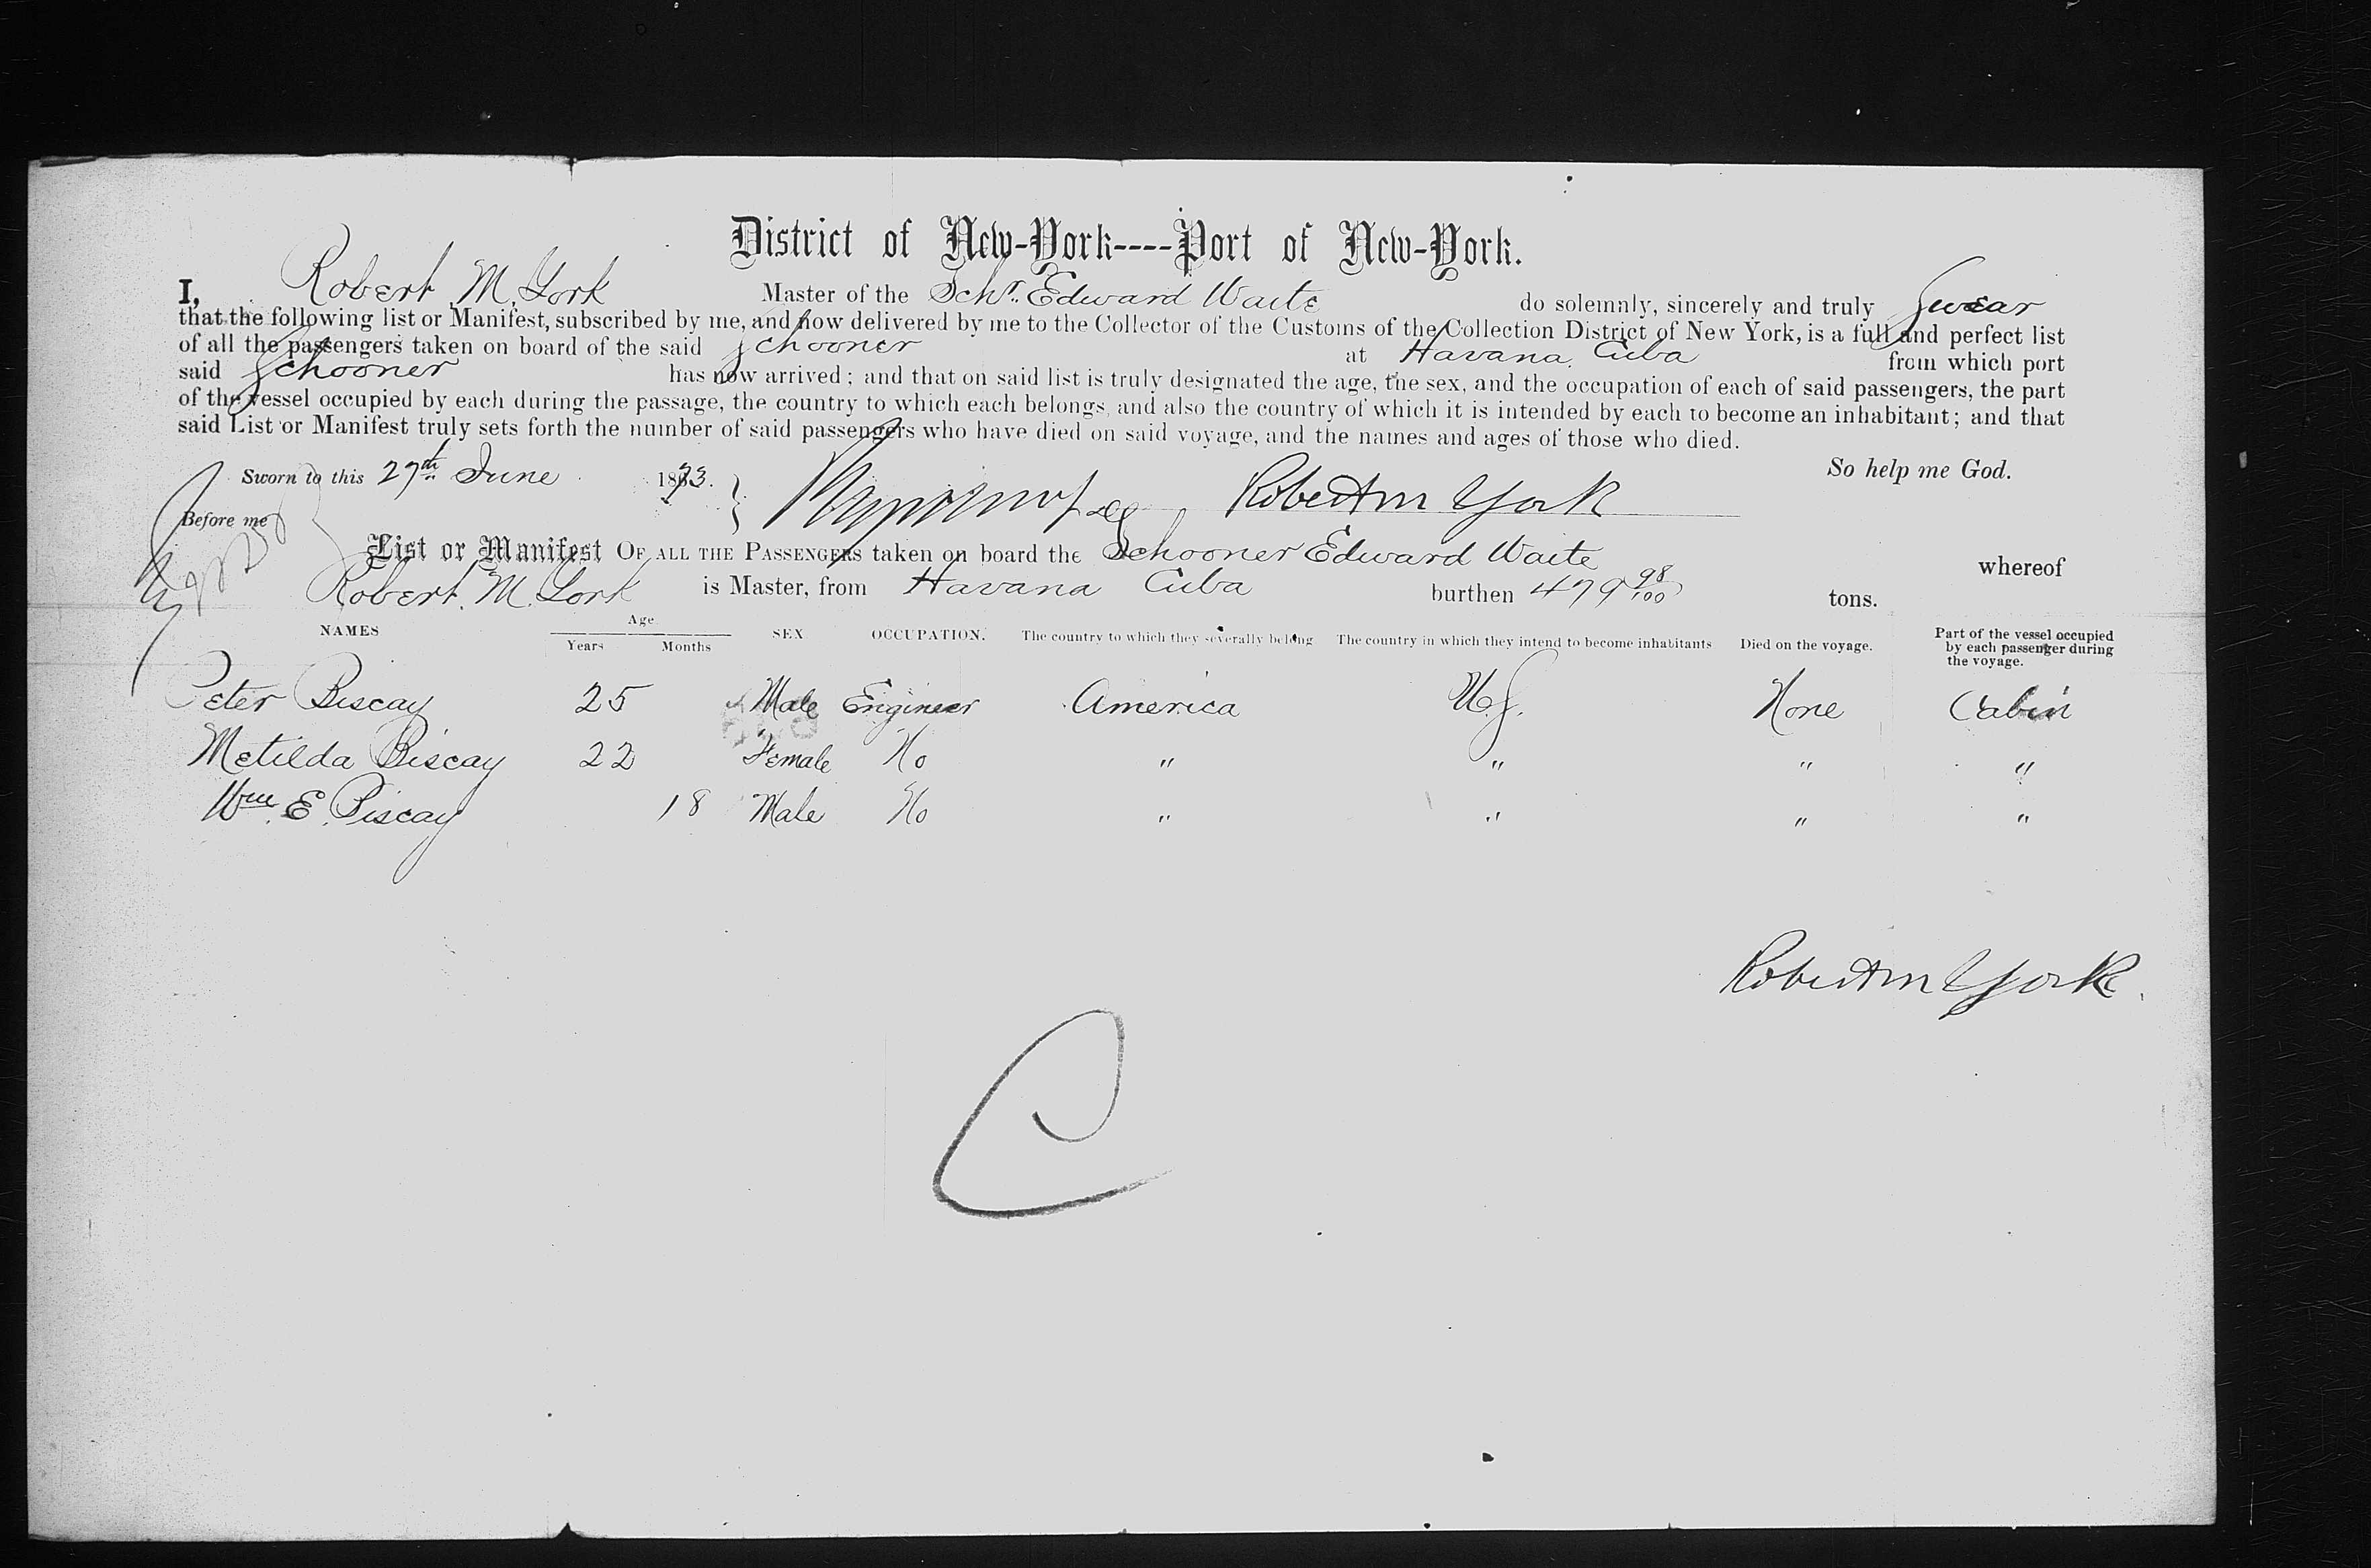 District of New-York----Port of New-York.
I, Robert M. York Master of the Schr. Edward Waite do solemnly, sincerely and truly Swear
that the following list or Manifest, subscribed by me, and now delivered by me to the Collector of the Customs of the Collection District of New York, is a full and perfect list
of all the passengers taken on board of the said Schooner at Havana, Cuba from which port
said Schooner has now arrived; and that on said list is truly designated the age, the sex, and the occupation of each of said passengers, the part
of the vessel occupied by each during the passage, the country to which each belongs, and also the country of which it is intended by each to become an inhabitant; and that
said List or Manifest truly sets forth the number of said passengers who have died on said voyage, and the names and ages of those who died.
So help me God.
Sworn to this 27th June 1873. Robert M York
Before me
List or Manifest OF ALL THE PASSENGERS taken on board the Schooner Edward Waite whereof
Robert. M. York is Master, from Havana Cuba burthen 479 98/100 tons.
NAMES Age Years Months SEX OCCUPATION. The country to which they severally belong The country in which they intend to become inhabitants Died on the voyage. Part of the vessel occupied by each passenger during the voyage.
Peter Biscay 25 Male Engineer America U.S. None Cabin
Metilda Biscay 22 Female No " " " "
Wm. E. Biscay 18 Male No " " " "
Robert M York.
C